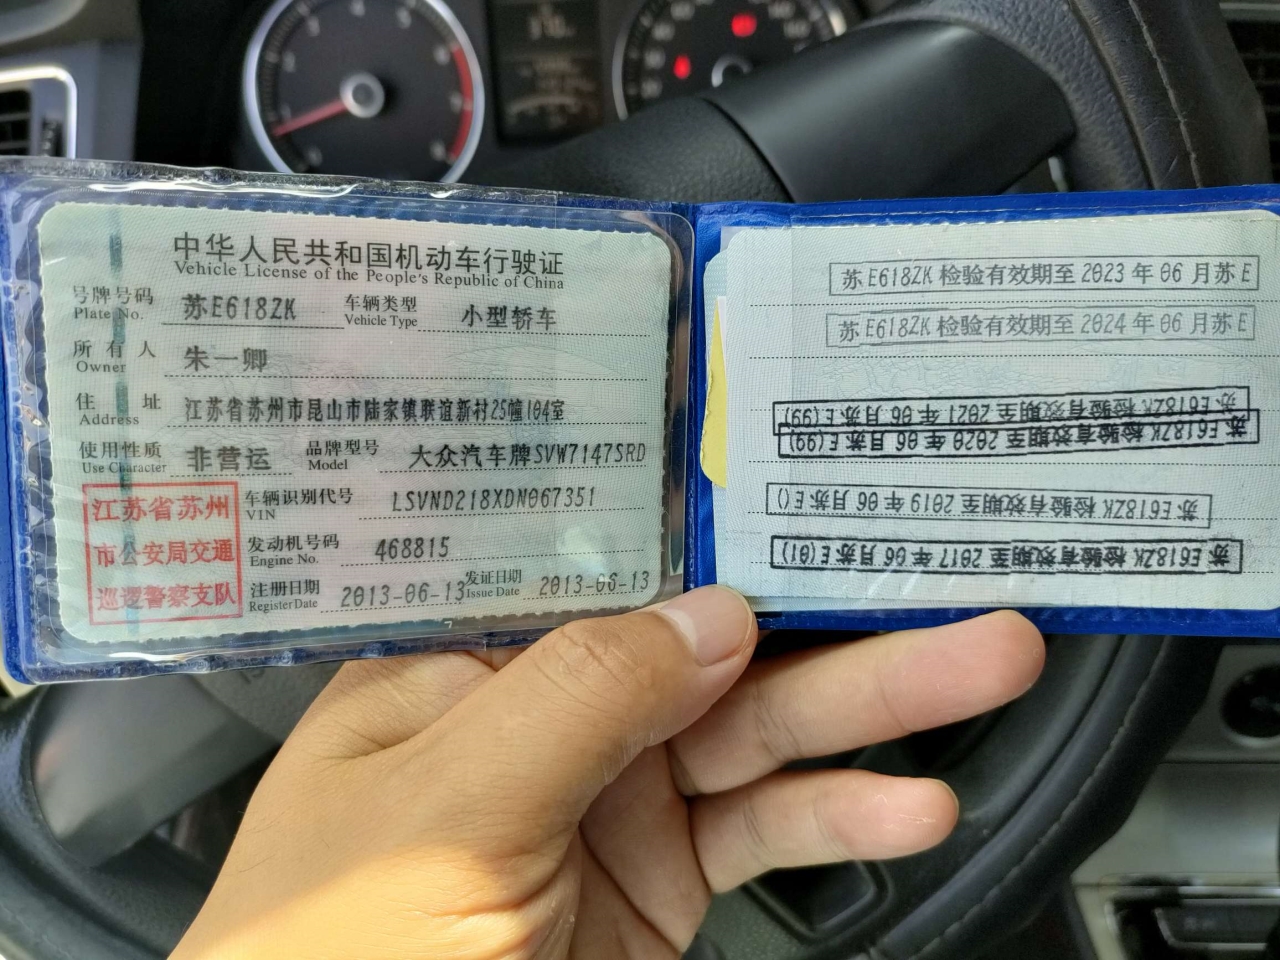 中华人民共和国机动车行驶证
Vehicle License of the People's Republic of China
号牌号码 苏E618ZK 车辆类型 小型轿车
Plate No. Vehicle Type
所有人 朱一卿
Owner
住址 江苏省苏州市昆山市陆家镇联谊新村25幢104室
Address
使用性质 非营运 品牌型号 大众汽车牌SVW7147SRD
Use Character Model
江苏省苏州
市公安局交通
巡逻警察支队
车辆识别代号 LSVND218XDN067351
VIN
发动机号码 468815
Engine No.
注册日期 2013-06-13 发证日期 2013-06-13
Register Date Issue Date
苏E618ZK 检验有效期至 2023 年 06 月苏E
苏E618ZK 检验有效期至 2024 年 06 月苏E
苏E618ZK 检验有效期至 2021 年 06 月苏E(99)
苏E618ZK 检验有效期至 2020 年 06 月苏E(99)
苏E618ZK 检验有效期至 2019 年 06 月苏E()
苏E618ZK 检验有效期至 2017 年 06 月苏E(01)